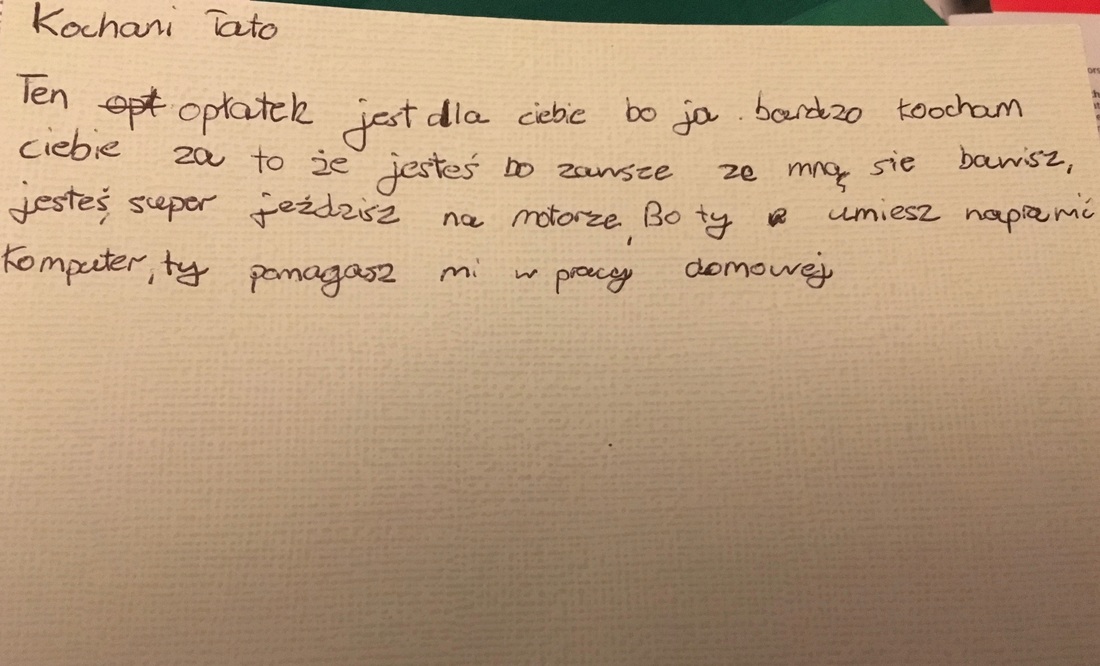 Kochani Tato
Ten opt opłatek jest dla ciebie bo ja bardzo koocham
ciebie za to że jesteś bo zawsze ze mną się bawisz,
jesteś super jeździsz na motorze, Bo ty umiesz napramić
komputer, ty pomagasz mi w pracy domowej